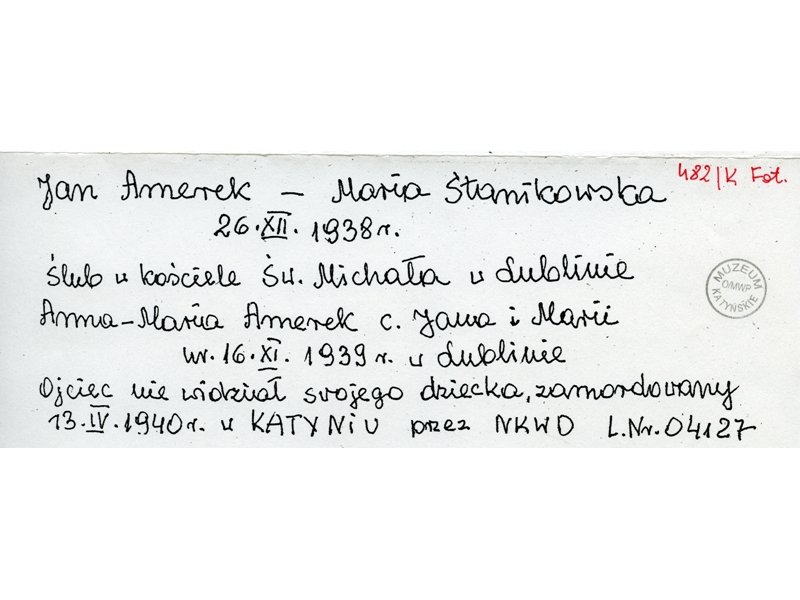 482/K Fot.
Jan Amerek – Maria Stanikowska
26.XII.1938 r.
Ślub w kościele Św. Michała w Lublinie
Anna-Maria Amerek c. Jana i Marii
ur. 16.XI.1939 r. w Lublinie
Ojciec nie widział swojego dziecka, zamordowany
13.IV.1940 r. w KATYNIU przez NKWD L.Nr. 04127
MUZEUM
O/MWP
KATYŃSKIE